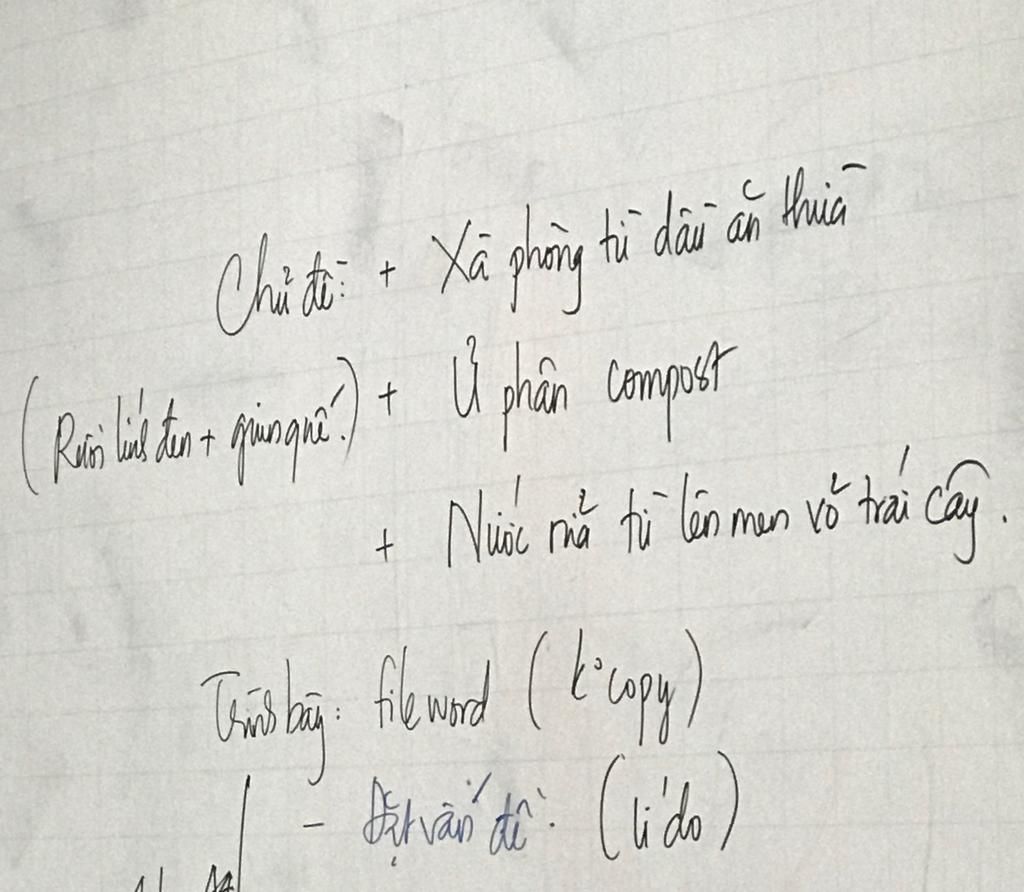 Chủ đề: + Xà phòng từ dầu ăn thừa
(Ruồi lính đen + giun quế.) + Ủ phân compost
+ Nước rửa từ lên men vỏ trái cây.
Trình bày: file word (k° copy)
- Đặt vấn đề: (lí do)